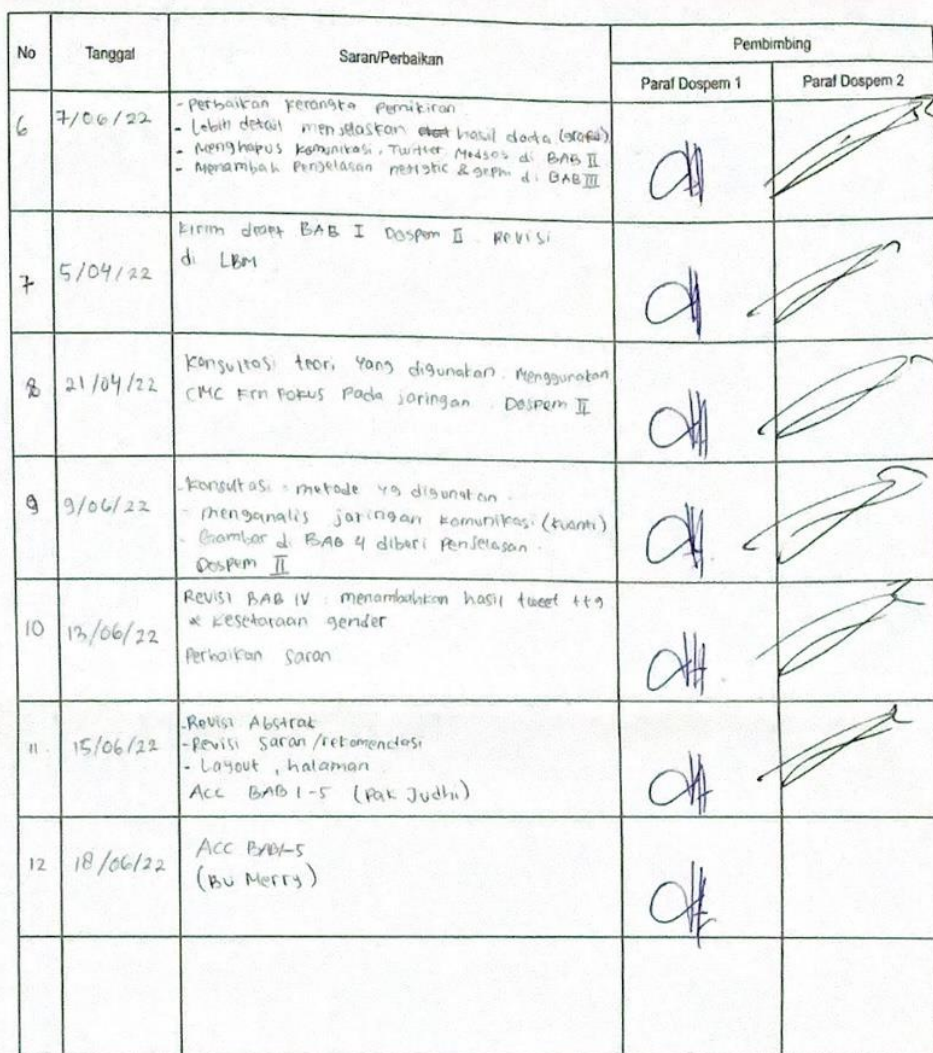 No Tanggal Saran/Perbaikan Pembimbing
Paraf Dospem 1 Paraf Dospem 2
6 7/06/22 - Perbaikan kerangka pemikiran
- Lebih detail menjelaskan hasil data (grafis)
- Menghapus komunikasi, Twitter, Medsos di BAB II
- Menambah Penjelasan netlytic & gephi di BAB III
7 5/04/22 Kirim draft BAB I Dospem II Revisi
di LBM
8 21/04/22 Konsultasi teori yang digunakan. Menggunakan
CMC krn Fokus Pada jaringan. Dospem II
9 9/06/22 - Konsultasi: metode yg digunakan.
- menganalis jaringan komunikasi (kuanti)
- Gambar di BAB 4 diberi Penjelasan.
Dospem II
10 13/06/22 Revisi BAB IV : menambahkan hasil tweet ttg
& kesetaraan gender
Perbaikan saran
11. 15/06/22 - Revisi Abstrak
- Revisi saran/rekomendasi
- Layout, halaman
Acc BAB 1-5 (Pak Judhi)
12 18/06/22 ACC BAB1-5
(Bu Merry)